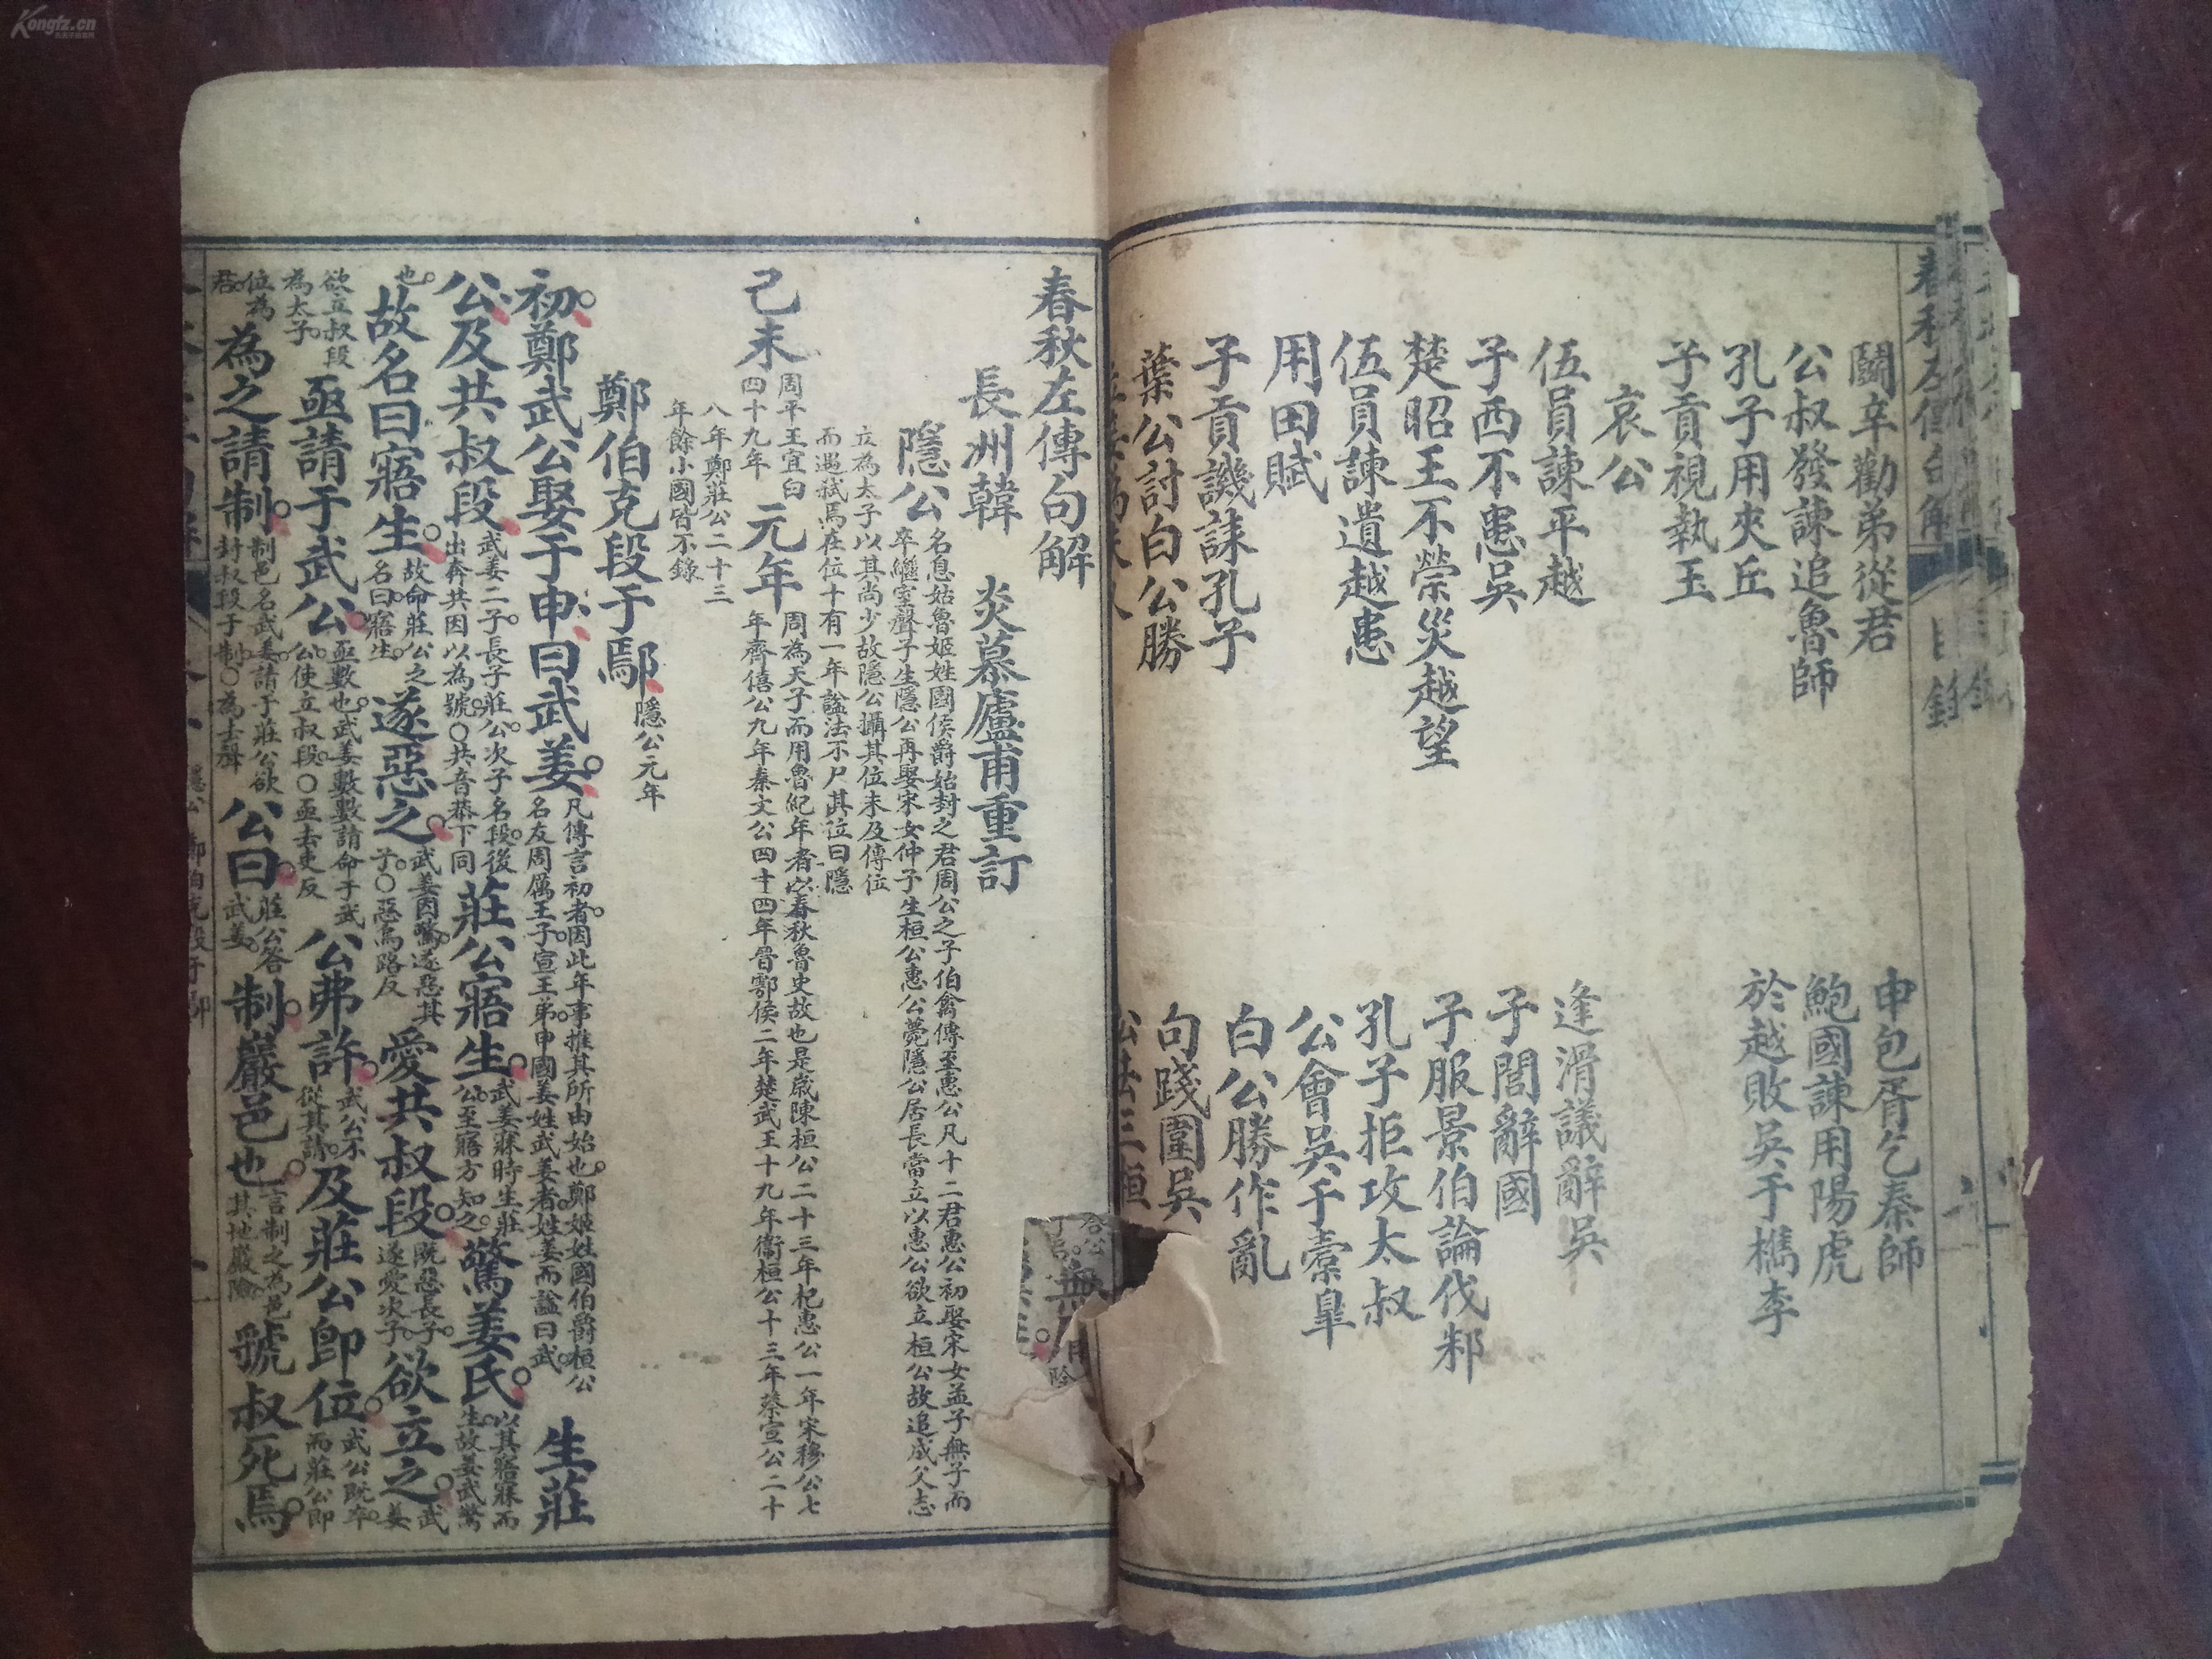 春秋左傳句解
目錄
鬬辛勸弟從君
申包胥乞秦師
公叔發諫追魯師
鮑國諫用陽虎
孔子用夾丘
於越敗吳于檇李
子貢視執玉
哀公
伍員諫平越
逢滑議辭吳
子西不患吳
子閭辭國
楚昭王不禜災越望
子服景伯論伐邾
伍員諫遺越患
孔子拒攻太叔
用田賦
公會吳于橐皐
子貢譏誄孔子
白公勝作亂
葉公討白公勝
句踐圍吳
春秋左傳句解
長洲韓 炎慕廬甫重訂
隱公
名息姑魯姬姓國侯爵始封之君周公之子伯禽傳至惠公凡十二君惠公初娶宋女孟子無子而
卒繼室聲子生隱公再娶宋女仲子生桓公惠公薨隱公居長當立以惠公欲立桓公故追成父志
立為太子以其尚少故隱公攝其位未及傳位
而遇弒焉在位十有一年諡法不尸其位曰隱
己未
周平王宜臼
四十九年
元年
周為天子而用魯紀年者以春秋魯史故也是歲陳桓公二十三年杞惠公一年宋穆公七
年齊僖公九年秦文公四十四年晉鄂侯二年楚武王十九年衞桓公十三年蔡宣公二十
八年鄭莊公二十三
年餘小國皆不錄
鄭伯克段于鄢
隱公元年
初鄭武公娶于申曰武姜
凡傳言初者因此年事推其所由始也鄭姬姓國伯爵桓公
名友周厲王子宣王弟申國姜姓武姜者姓姜而諡曰武
生莊
公及共叔段
武姜二子長子莊公次子名段後
出奔共因以為號○共音恭下同
莊公寤生
武姜寐時生莊
公至寤方知之
驚姜氏
以其寤寐而
生故姜武驚
也
故名曰寤生
故命莊公之
名曰寤生
遂惡之
武姜因驚遂惡其
子○惡烏路反
愛共叔段
既惡長子
遂愛次子
欲立之
武
姜
欲立叔段
為太子
亟請于武公
亟數也武姜數數請命于武
公使立叔段○亟去吏反
公弗許
武公不
從其請
及莊公卽位
武公既卒
而莊公卽
位為
君
為之請制
制邑名武姜請于莊公欲
封叔段于制○為去聲
公曰
莊公答
武姜
制巖邑也
言制之為邑
其地巖險
虢叔死焉
隱公 鄭伯克段于鄢
Kongfz.cn